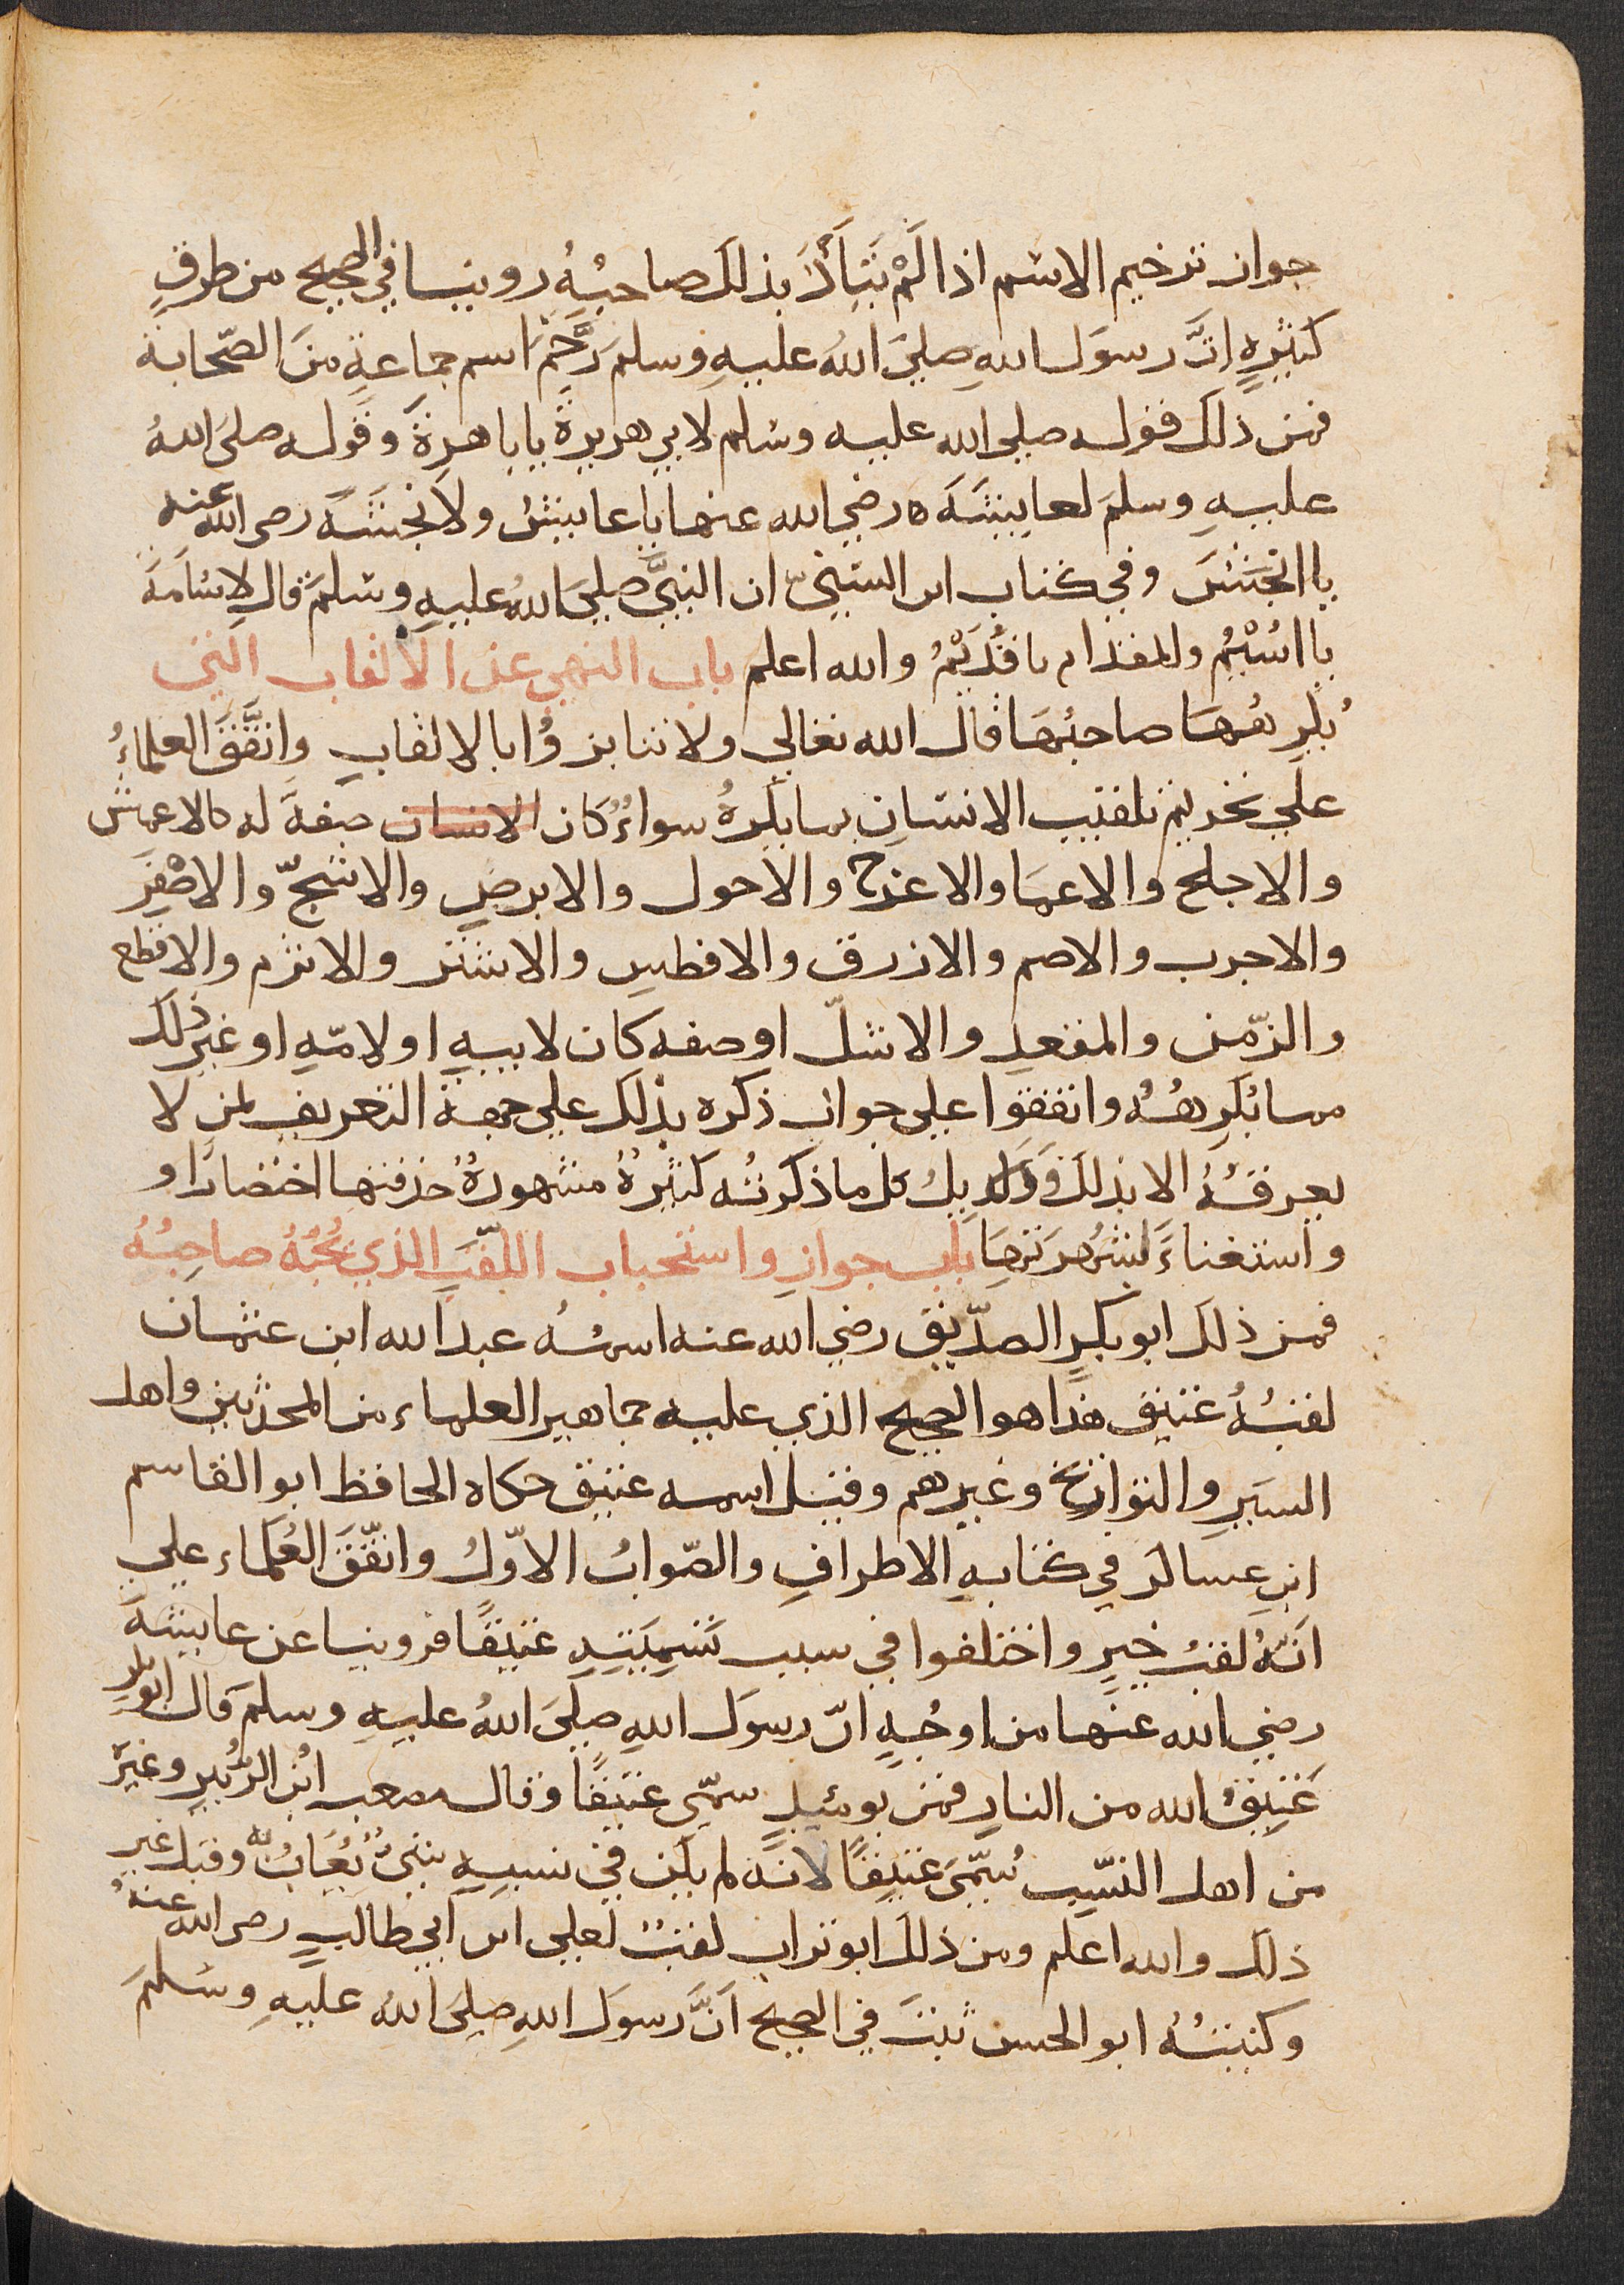 جواز ترخيم الاسم اذا لَمْ يَتَأَذَّ بذلكَ صاحبُهُ روينا في الصحيح من طرقٍ
كثيرةٍ انَّ رسوَل اللهِ صليَ اللهُ عليهِ وسلمَ رَخَّمَ اسم جماعةٍ منَ الصّحابة
فمن ذلكَ قوله صلي الله عليه وسلم لابي هريرةَ يابا هرةَ وقوله صليَ اللهُ
عليهِ وسلمَ لعايشَةَ رضي الله عنها يا عايشُ ولاَنجشَةَ رضي الله عنه
يا انجَشَ وفي كتاب ابن السنيّ ان النبيَّ صليَ اللهُ عليهِ وسلمَ قال لاِسَامَةَ
يا اُسَيْمُ وللمقدام يا قُدَيْمُ والله اعلم باب النهي عن الالقاب التي
يُكرِهُهَا صاحبُهَا قال الله تعالي ولا تنابزوُا بالالقابِ واتفَّقَ العلماءُ
علي تحريم تلقيب الانسانِ بما يكرهُ سواءٌ كان الانسان صفةً له كالاعمش
والاجلح والاعما والاعرج والاحول والابرصِ والاشجّ والاصْفَرِ
والاحدب والاصم والازرق والافطس والاشتر والاثرم والاقطع
والزّمن والمقعد والاشلّ او صفه كان لابيهِ او لامّهِ او غير ذلك
مما يُكرِهُهُ واتفقوا علي جواز ذكره بذلكَ علي جهة التعريف لمن لا
يعرفُهُ الا بذلكَ وَدلايلُ كل ما ذكرتُه كثيرةُ مشهورةُ حذفتها اختصارًا و
واستغناءً بشُهرتهَا باب جوازِ واستحباب اللّقَبِ الذي يُحُبّهُ صاحِبُهُ
فمن ذلك ابو بكرٍ الصدّيق رضي الله عنه اسمُهُ عبد الله ابن عثمان
لقبُهُ عتيق هذَا هو الصحيح الذي عليه جماهير العلماء من المحدّثين واهل
السيَرِ والتواريخ وغيرهم وقيل اسمه عتيق حكاه الحافظ ابو القاسم
ابنِ عساكر في كتابهِ الاطرافِ والصّوابُ الاوّلُ واتفّقَ العُلَماء علي
انّهُ لقبُ خيرٍ واختلفوا في سبب تَسمِيَتِهِ عتيقًا فروينا عن عايشةَ
رضي الله عَنها من اوجُهٍ انّ رسوَل اللهِ صليَ اللهُ عليهِ وسلمَ قال ابو بكر
عَتِيقُ الله من النارِ فمن يومئِذٍ سمّي عتيقًا وقال مصعب ابن الزُبيرِ وغيرُ
من اهل النسّب سُمّيَ عتيقًا لانّه لم يكن في نسبهِ شئُ يُعَابُ به وقيل غير
ذلك والله اعلم ومن ذلكَ ابو تراب لقبُ لعلي ابن ابي طالبٍ رضي الله عنهُ
وكنيتُهُ ابو الحسن ثبتَ في الصحيح انَّ رسولَ اللهِ صليَ اللهُ عليهِ وسلمَ